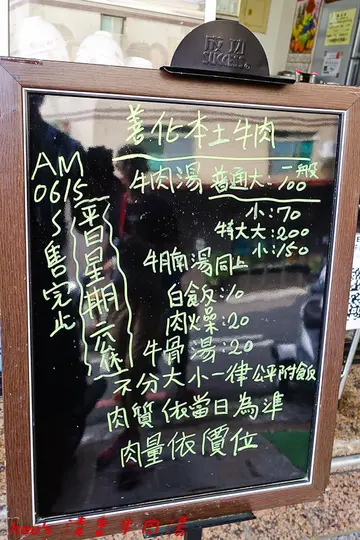 成功
SUCCESS
善化本土牛肉
牛肉湯 普通 一般
大:100
小:70
特大大:200
小:150
牛腩湯同上
白飯:10
肉燥:20
牛骨湯:20
不分大小一律公平附飯
肉質依當日為準
肉量依價位
AM
0615
~
售完止
平日星期六休